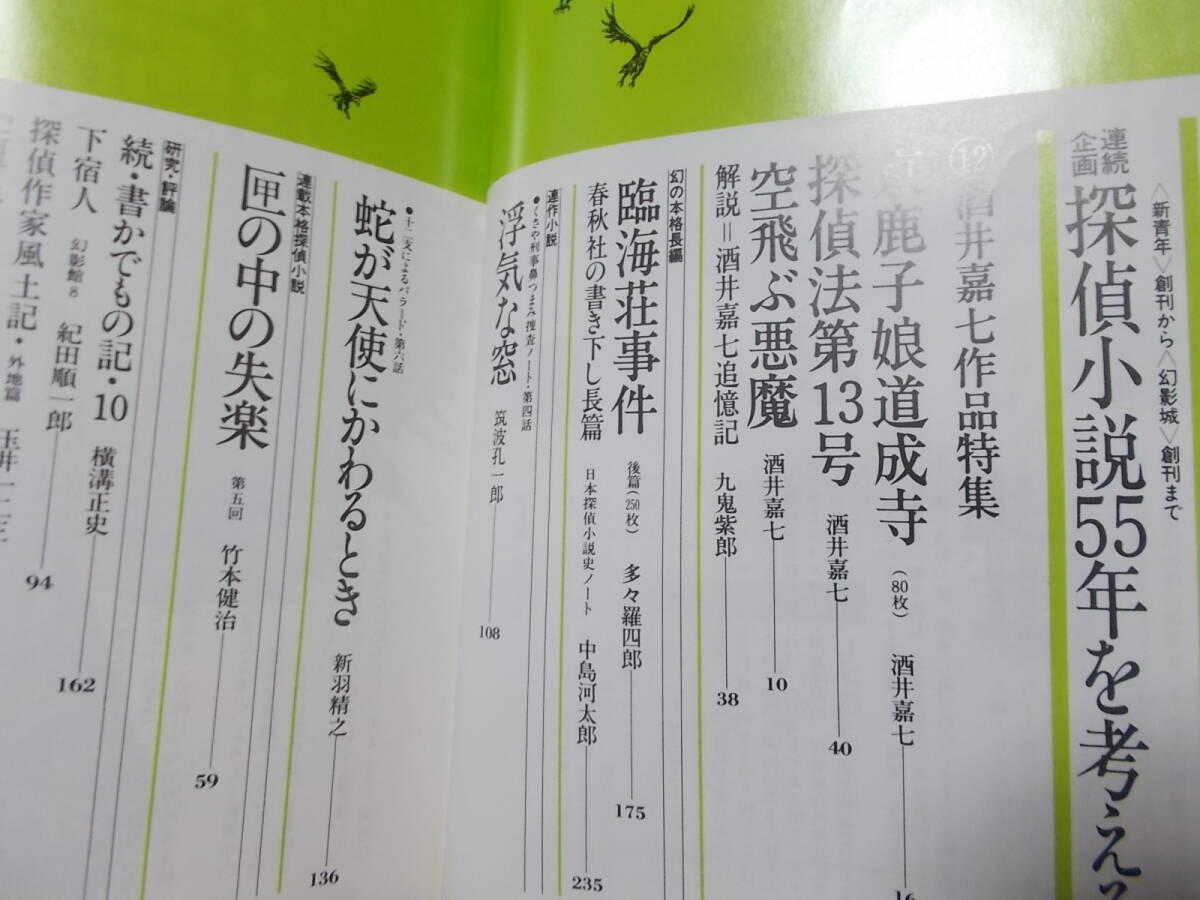 〈新青年〉創刊から〈幻影城〉創刊まで
連続企画 探偵小説55年を考える
⑫酒井嘉七作品特集
鹿子娘道成寺 (80枚) 酒井嘉七 16
探偵法第13号 酒井嘉七 40
空飛ぶ悪魔 酒井嘉七 10
解説=酒井嘉七追憶記 九鬼紫郎 38
幻の本格長編
臨海荘事件 後篇(250枚) 多々羅四郎 175
春秋社の書き下し長篇 日本探偵小説史ノート 中島河太郎 235
連作小説
●くさや刑事鼻つまみ捜査ノート・第四話
浮気な窓 筑波孔一郎 108
●十二支によるバラード・第六話
蛇が天使にかわるとき 新羽精之 136
連載本格探偵小説
匣の中の失楽 第五回 竹本健治 59
研究・評論
続・書かでもの記・10 横溝正史 162
下宿人 幻影館8 紀田順一郎 94
探偵作家風土記・外地篇 玉井一二三